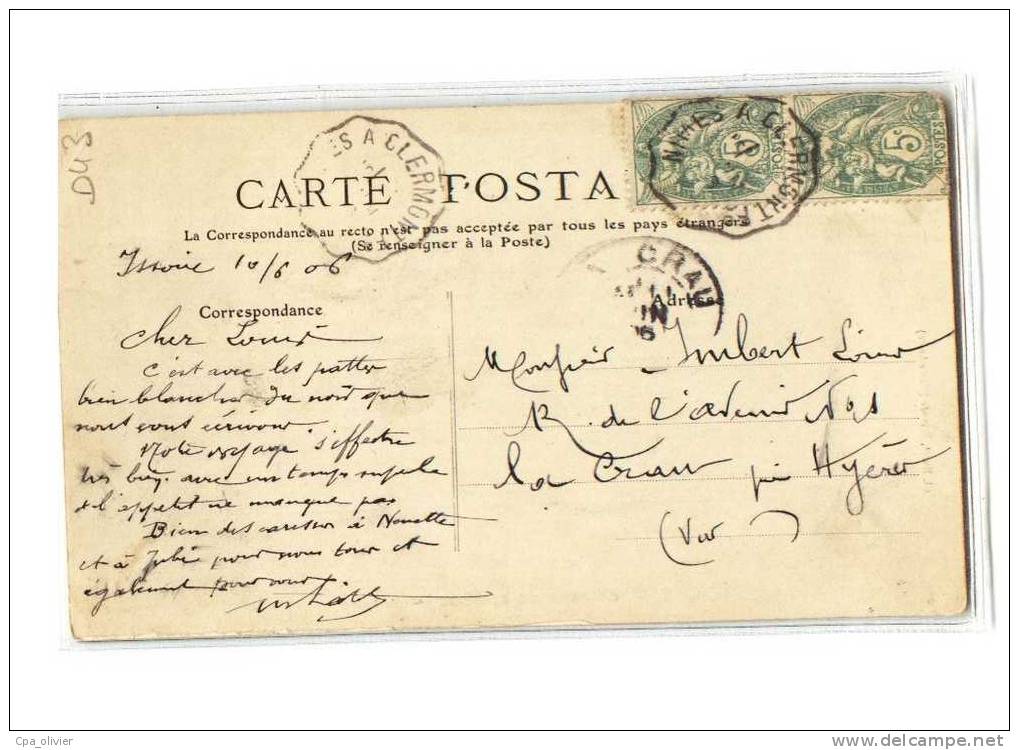 DU3
ES A CLERMON
NIMES A CLERMONT FD
5c
POSTES
5c
POSTES
CARTE POSTA
La Correspondance au recto n'est pas acceptée par tous les pays étrangers
(Se renseigner à la Poste)
Issoire 10/6 06
CRAU
Correspondance
Adresse
Cher Louis
c'est avec les pattes
bien blanches du nord que
nous vous écrivons
Notre voyage s'effectue
très bien avec un temps superbe
et l'appetit ne manque pas
Bien des caresses à Nonette
et à Jubé pour nous tous et
également pour vous
Monsieur Imbert Louis
R. de l'avenir No 1
La Crau près Hyères
(Var)
Cpa_olivier
www.delcampe.net